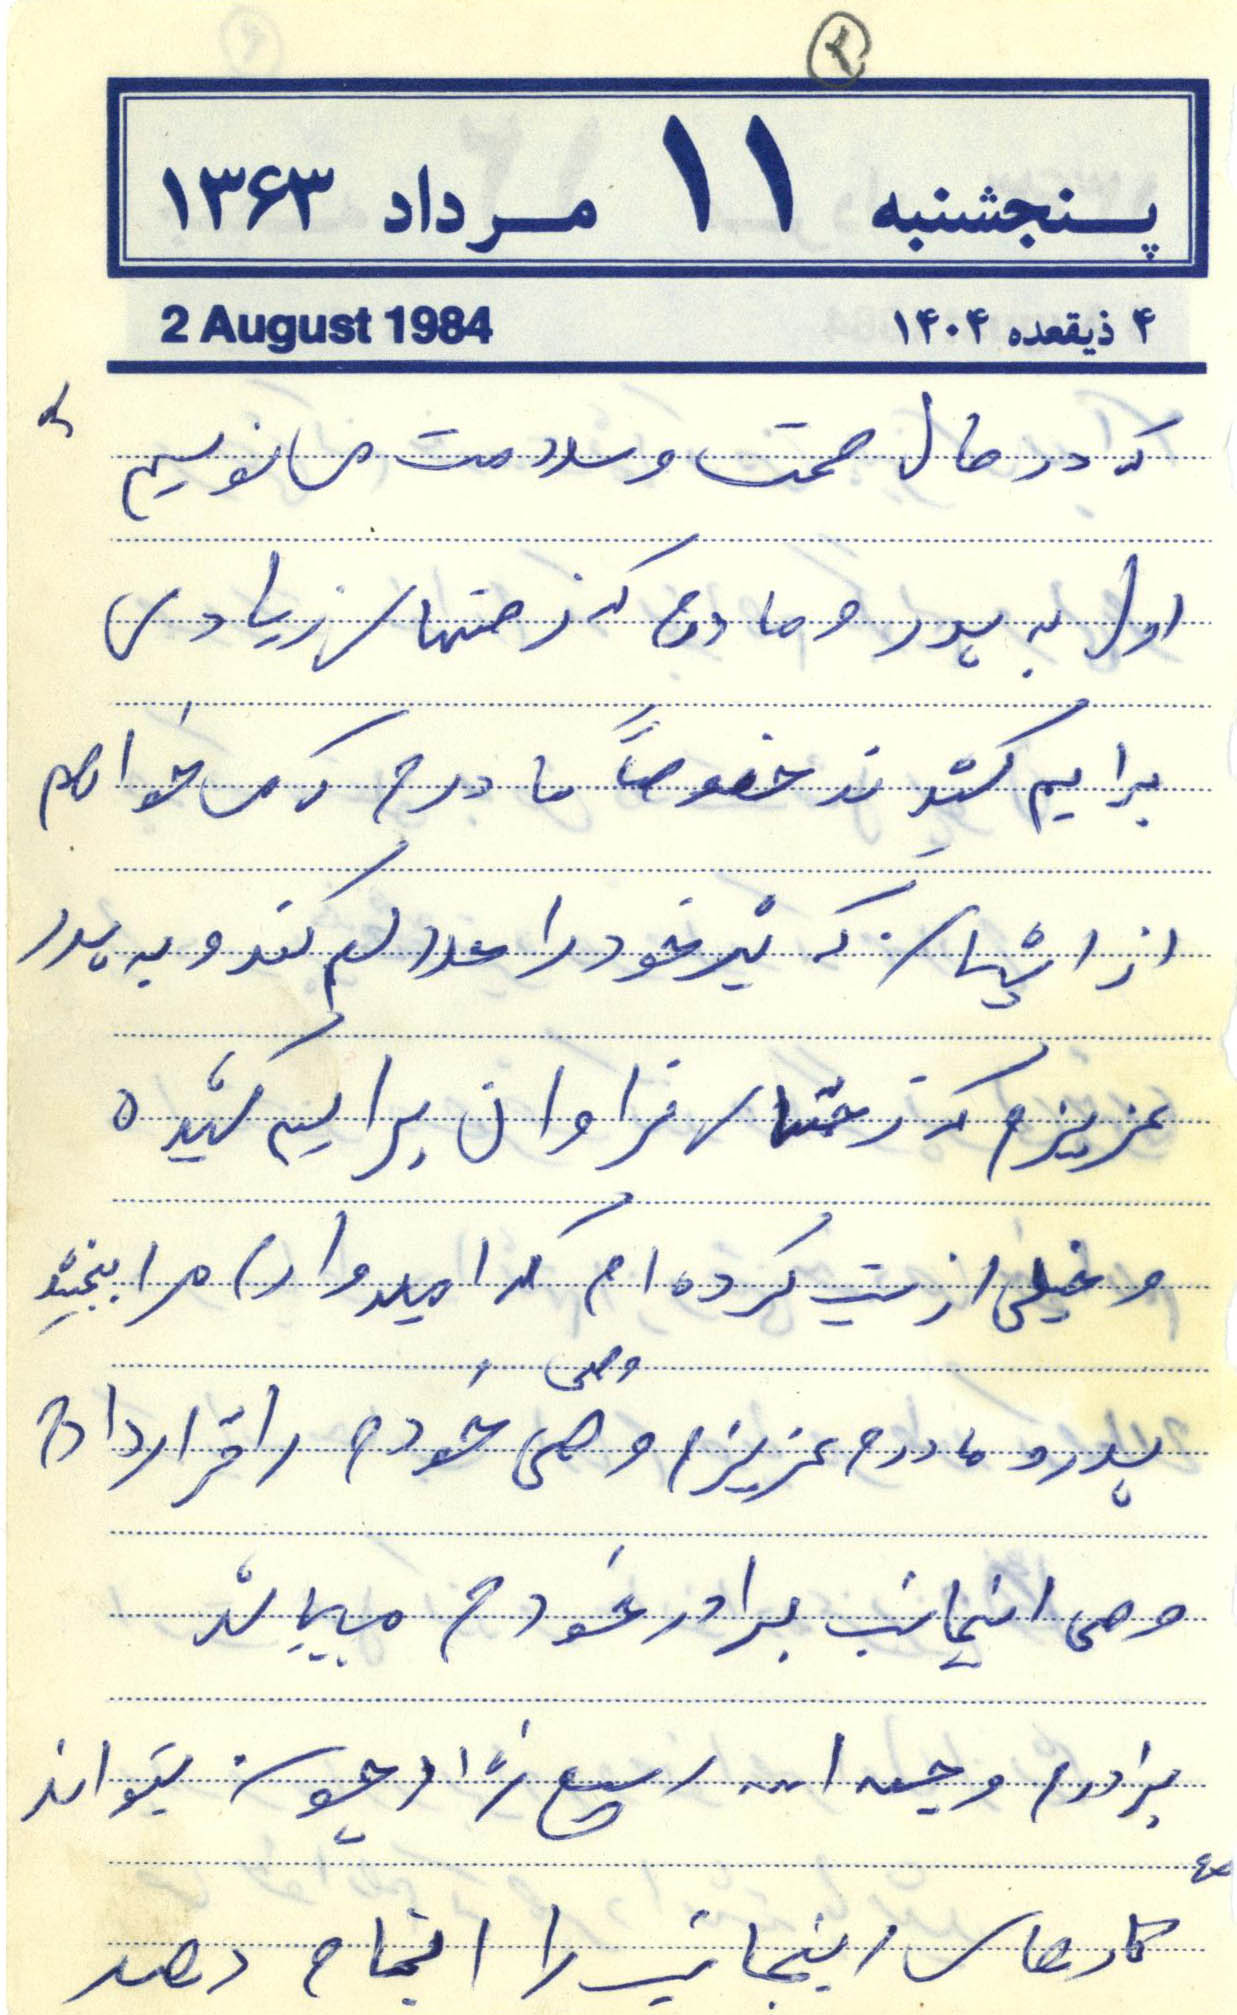 ۲
پنجشنبه ۱۱ مرداد ۱۳۶۳
2 August 1984 ۴ ذیقعده ۱۴۰۴
که در حال صحت و سلامت می‌نویسیم
اول به پدر و مادرم که زحمتهای زیادی
برایم کشیدند خصوصاً مادرم که می‌خواهم
از ایشان که شیر خود را حلالم کند و به پدر
عزیزم که زحمتهای فراوان برایم کشیده
و خیلی ازیت کرده‌ام که امیدوارم مرا ببخشید
وصی
پدر و مادرم عزیزم وصی خودم را قرار دادم
وصی اینجانب برادر خودم میباشد
برادرم وجیه الله ربیع نژاد چون میتواند
کارهای اینجانب را انجام دهد